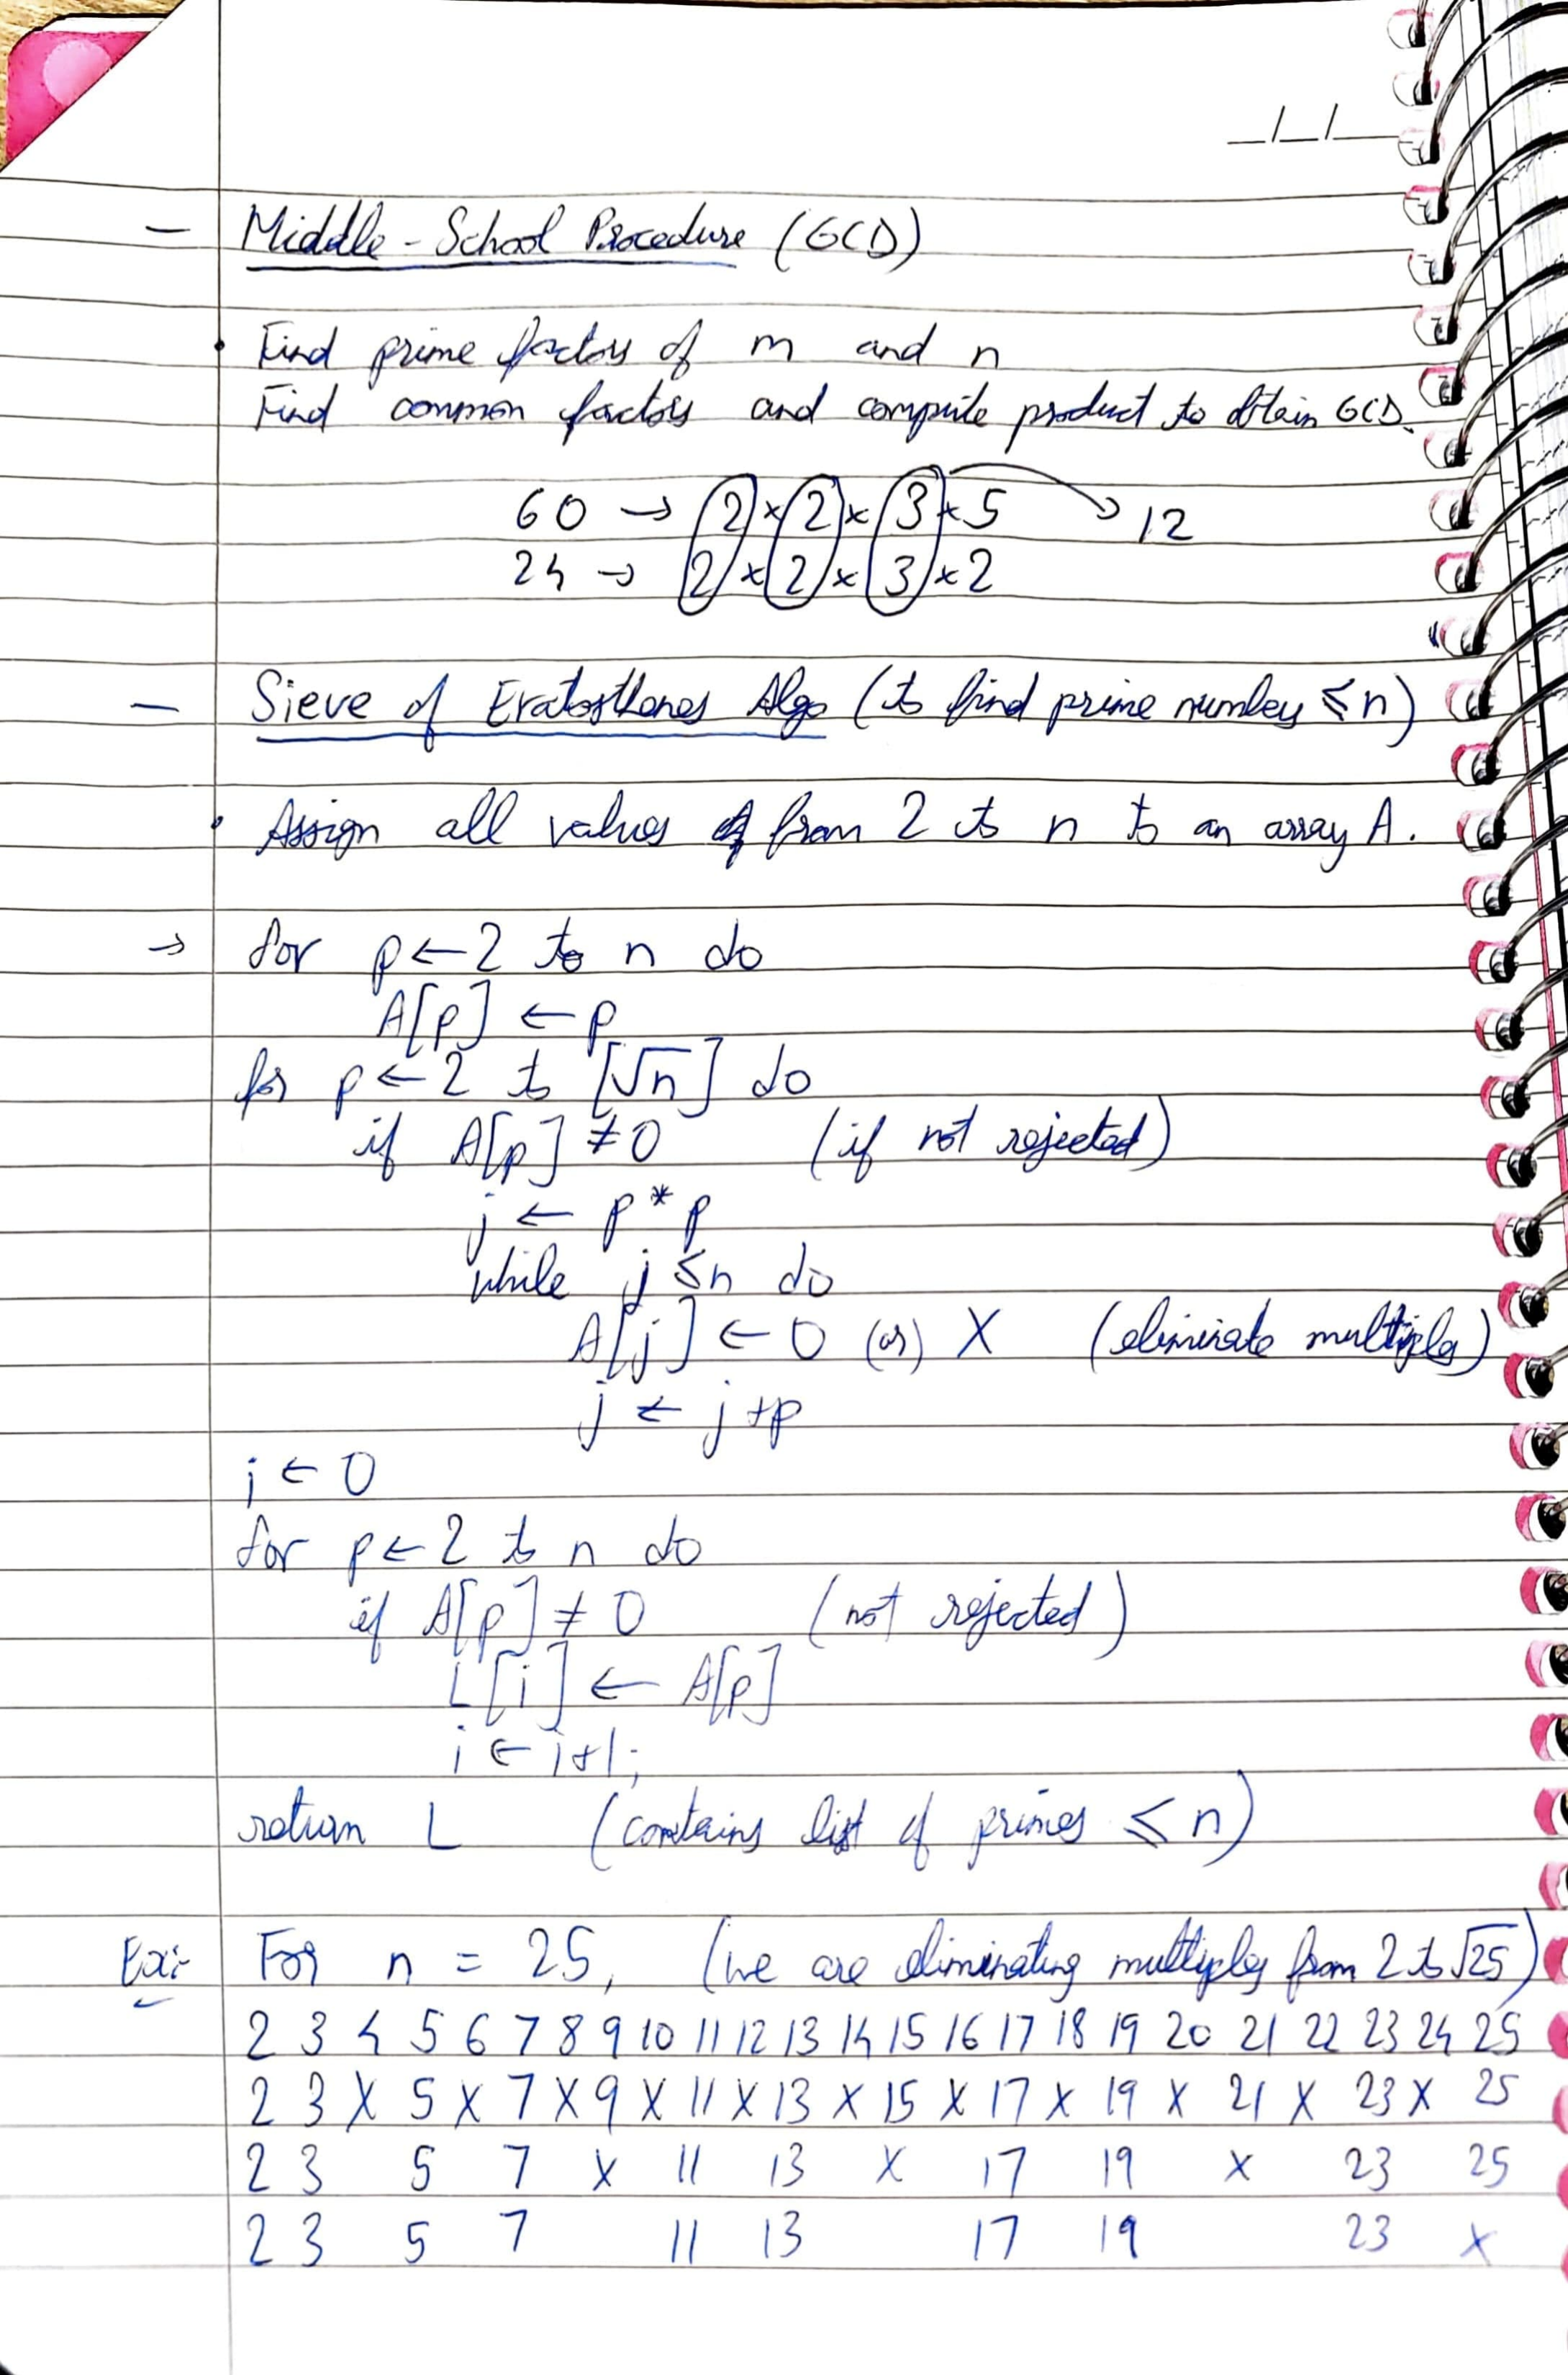 _/_/_
- Middle-School Procedure (GCD)
• Find prime factors of m and n
Find common factors and compute product to obtain GCD.
60 → 2 × 2 × 3 × 5 → 12
24 → 2 × 2 × 3 × 2
- Sieve of Eratosthenes Algo (to find prime numbers ≤ n)
• Assign all values from 2 to n to an array A.
→ for p ← 2 to n do
A[p] ← p
for p ← 2 to [√n] do
if A[p] ≠ 0 (if not rejected)
j ← p * p
while j ≤ n do
A[j] ← 0 (or) X (eliminate multiples)
j ← j + p
i ← 0
for p ← 2 to n do
if A[p] ≠ 0 (not rejected)
L[i] ← A[p]
i ← i+1;
return L (contains list of primes ≤ n)
Ex:- For n = 25, (we are eliminating multiples from 2 to √25)
2 3 4 5 6 7 8 9 10 11 12 13 14 15 16 17 18 19 20 21 22 23 24 25
2 3 X 5 X 7 X 9 X 11 X 13 X 15 X 17 X 19 X 21 X 23 X 25
2 3 5 7 X 11 13 X 17 19 X 23 25
2 3 5 7 11 13 17 19 23 X